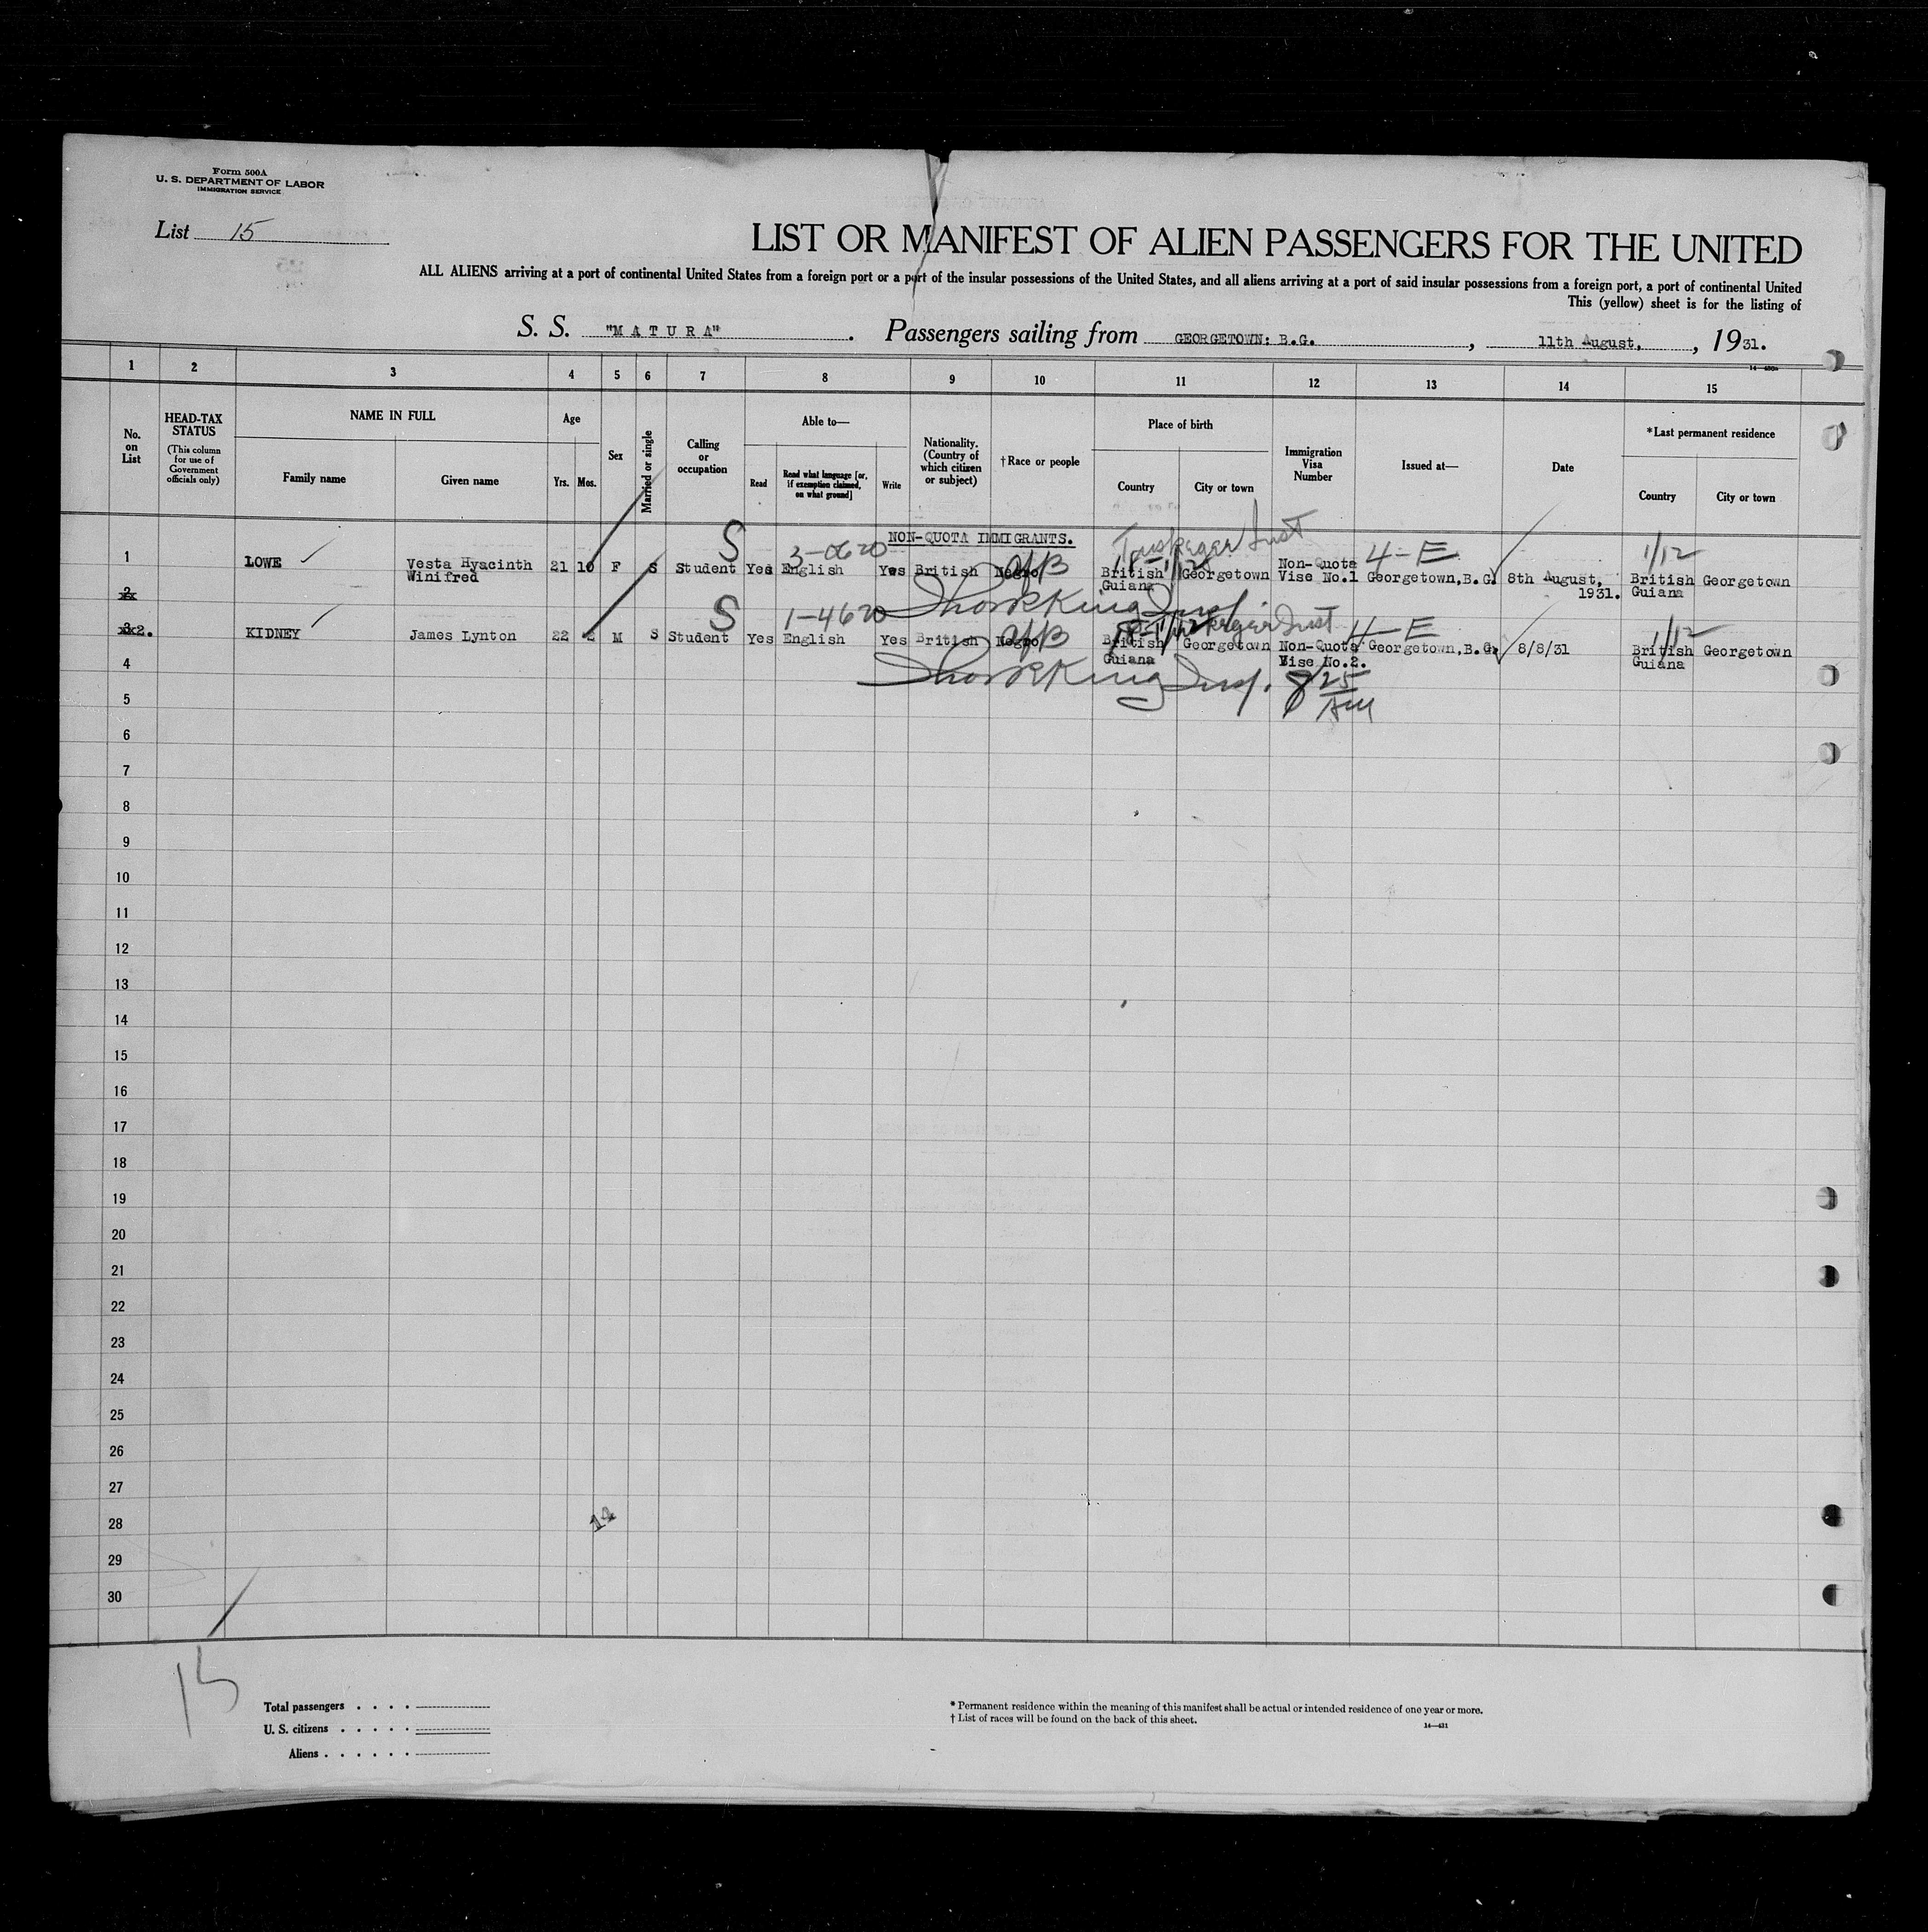 Form 500A
U. S. DEPARTMENT OF LABOR
IMMIGRATION SERVICE
List 15
LIST OR MANIFEST OF ALIEN PASSENGERS FOR THE UNITED
ALL ALIENS arriving at a port of continental United States from a foreign port or a port of the insular possessions of the United States, and all aliens arriving at a port of said insular possessions from a foreign port, a port of continental United
This (yellow) sheet is for the listing of
S. S. "MATURA" . Passengers sailing from GEORGETOWN: B.G. , 11th August, , 1931.
1 2 3 4 5 6 7 8 9 10 11 12 13 14 15
No. on List
HEAD-TAX STATUS
(This column for use of Government officials only)
NAME IN FULL
Family name Given name
Age
Yrs. Mos.
Sex
Married or single
Calling or occupation
Able to—
Read
Read what language [or, if exemption claimed, on what ground]
Write
Nationality. (Country of which citizen or subject)
†Race or people
Place of birth
Country City or town
Immigration Visa Number
Issued at—
Date
*Last permanent residence
Country City or town
NON-QUOTA IMMIGRANTS.
Tuskegee Inst
S 3-0620 4-E 1/12
1 LOWE Vesta Hyacinth Winifred 21 10 F S Student Yes English Yes British Negro Af B British Guiana Georgetown Non-Quota Vise No.1 Georgetown,B.G. 8th August, 1931. British Guiana Georgetown
2
King Insp.
S 1-4620 Tuskegee Inst 4-E 1/12
3 2. KIDNEY James Lynton 22 M S Student Yes English Yes British Negro Af B British Guiana Georgetown Non-Quota Vise No.2. Georgetown,B.G. 8/8/31 British Guiana Georgetown
4
King Insp. 8 25 AM
5
6
7
8
9
10
11
12
13
14
15
16
17
18
19
20
21
22
23
24
25
26
27
28
14
29
30
15
Total passengers . . . .
U. S. citizens . . . . .
Aliens . . . . . .
* Permanent residence within the meaning of this manifest shall be actual or intended residence of one year or more.
† List of races will be found on the back of this sheet.
14—431